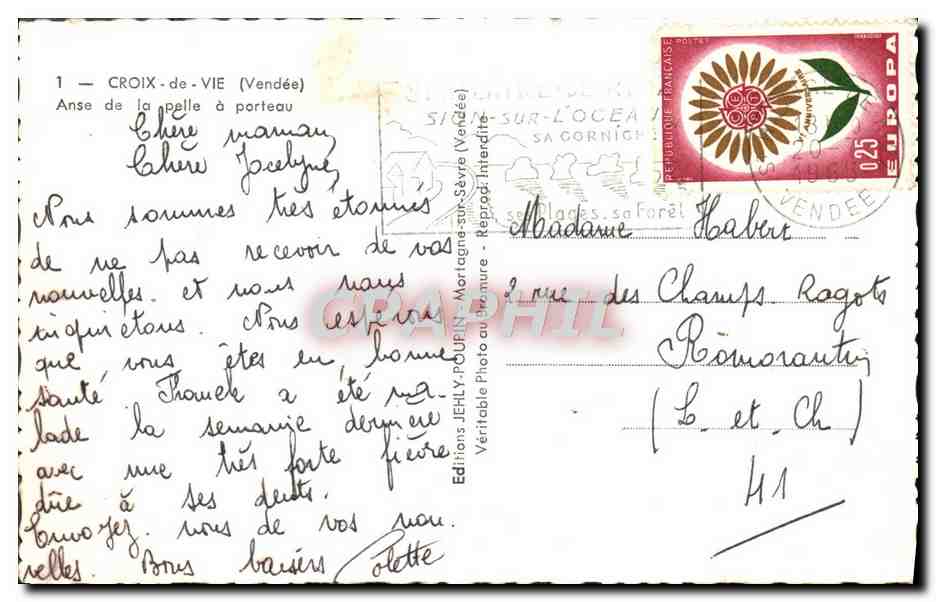 1 — CROIX-de-VIE (Vendée)
Anse de la pelle à porteau
Chère maman,
Chère Jocelyne,
Nous sommes très étonnés
de ne pas recevoir de vos
nouvelles. et nous nous
inquiétons. Nous espérons
que vous êtes en bonne
santé. Franck a été ma-
lade la semaine dernière
avec une très forte fièvre
dûe à ses dents.
Envoyez. nous de vos nou.
velles. Bons baisers Colette
Editions JEHLY-POUPIN - Mortagne-sur-Sèvre (Vendée)
Véritable Photo au Bromure - Reprod. Interdite
SION-SUR-L'OCEAN
SA CORNICHE
ses Plages. sa Forêt
VENDEE
REPUBLIQUE FRANÇAISE
POSTES
CEPT
Ve ANNIVERSAIRE
EUROPA
0,25
Madame Habert
2 rue des Champs. Ragots
Romorantin
(L. et. Ch)
41
GRAPHIL